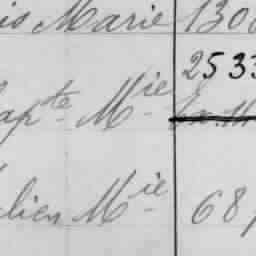 is Marie 130
2533
apte Mie
lien Mie 68